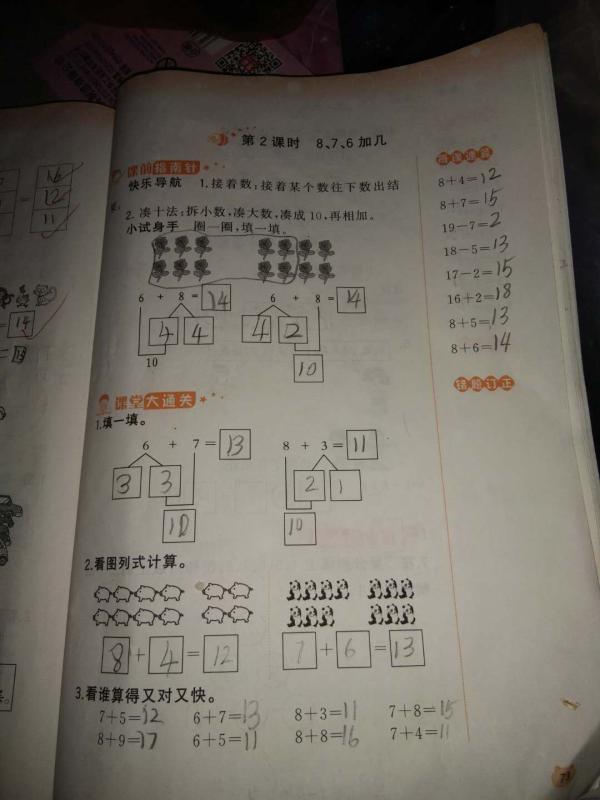 第2课时 8、7、6加几
课前指南针
快乐导航 1.接着数:接着某个数往下数出结
果。
2.凑十法:拆小数,凑大数,凑成10,再相加。
小试身手 圈一圈,填一填。
6 + 8 = 14
4 4
10
6 + 8 = 14
4 2
10
课堂大通关
1.填一填。
6 + 7 = 13
3 3
10
8 + 3 = 11
2 1
10
2.看图列式计算。
8 + 4 = 12
7 + 6 = 13
3.看谁算得又对又快。
7+5=12 6+7=13 8+3=11 7+8=15
8+9=17 6+5=11 8+8=16 7+4=11
8+4=12
8+7=15
19-7=2
18-5=13
17-2=15
16+2=18
8+5=13
8+6=14
错题订正
16
12
11
=14